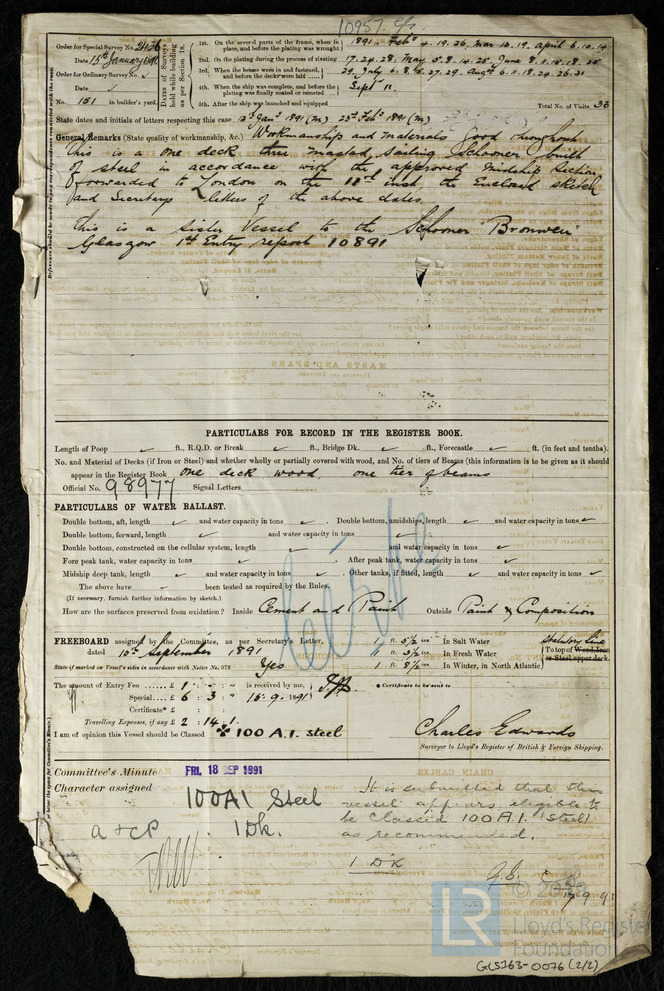 10957. Gls.
Order for Special Survey No. 2436
Date 15th January 1891
Order for Ordinary Survey No.
Date
No. 151 in builder's yard.
Dates of Surveys held while building as per Section 18.
1st. On the several parts of the frame, when in place, and before the plating was wrought
1891. Feb 4. 19. 26, Mar 10. 19. April 6. 10. 14
2nd. On the plating during the process of riveting
17. 24. 28. May 5. 8. 14. 25. June 8. 11. 15. 18. 25
3rd. When the beams were in and fastened, and before the decks were laid
29. July 4. 8. 16. 27. 29. Augt 6. 11. 18. 24. 26. 31
4th. When the ship was complete, and before the plating was finally coated or cemented
Sept 11.
5th. After the ship was launched and equipped
Total No. of Visits 33
State dates and initials of letters respecting this case 12th Jany 1891 (m) 25th Feby 1891 (m)
General Remarks (State quality of workmanship, &c.) Workmanship and materials good throughout
This is a one deck three masted Sailing Schooner built
of steel in accordance with the approved Midship Section
forwarded to London on the 11th inst, the Enclosed sketch
and Secretarys letters of the above dates.
This is a sister Vessel to the Schooner "Bronwen"
Glasgow 1st Entry report 10891
PARTICULARS FOR RECORD IN THE REGISTER BOOK.
Length of Poop ft., R.Q.D. or Break ft., Bridge Dk. ft., Forecastle ft. (in feet and tenths).
No. and Material of Decks (if Iron or Steel) and whether wholly or partially covered with wood, and No. of tiers of Beams (this information is to be given as it should
appear in the Register Book one deck wood, one tier of beams
Official No. 98977 Signal Letters
PARTICULARS OF WATER BALLAST.
Double bottom, aft, length and water capacity in tons Double bottom, amidships, length and water capacity in tons
Double bottom, forward, length and water capacity in tons
Double bottom, constructed on the cellular system, length and water capacity in tons
Fore peak tank, water capacity in tons After peak tank, water capacity in tons
Midship deep tank, length and water capacity in tons Other tanks, if fitted, length and water capacity in tons
The above have been tested as required by the Rules.
(If necessary, furnish further information by sketch.)
How are the surfaces preserved from oxidation? Inside Cement and Paint Outside Paint & Composition
FREEBOARD assigned by the Committee, as per Secretary's Letter, 1 ft. 5½ ins In Salt Water Statutory Line
dated 10th September 1891 ft. 3½ ins In Fresh Water To top of Wood, Iron or Steel upper deck.
State if marked on Vessel's sides in accordance with Notice No. 579 Yes 1 ft. 8½ ins In Winter, in North Atlantic
The amount of Entry Fee £ 1 : " : " is received by me,
Special £ 6 : 3 : " 15. 9. 1891
Certificate* £ : : * Certificate to be sent to
Travelling Expenses, if any £ 2 : 14 : 1.
I am of opinion this Vessel should be Classed 100 A.1. steel
Charles Edwards
Surveyor to Lloyd's Register of British & Foreign Shipping.
Committee's Minute FRI. 18 SEP 1891
Character assigned 100A1 Steel
1Dk.
a & CP
It is submitted that this
vessel appears eligible to
be Classed 100 A.1. (steel)
as recommended.
1 DK
17.9.91
LR
© 2022
Lloyd's Register
Foundation
GLS163-0076 (2/2)